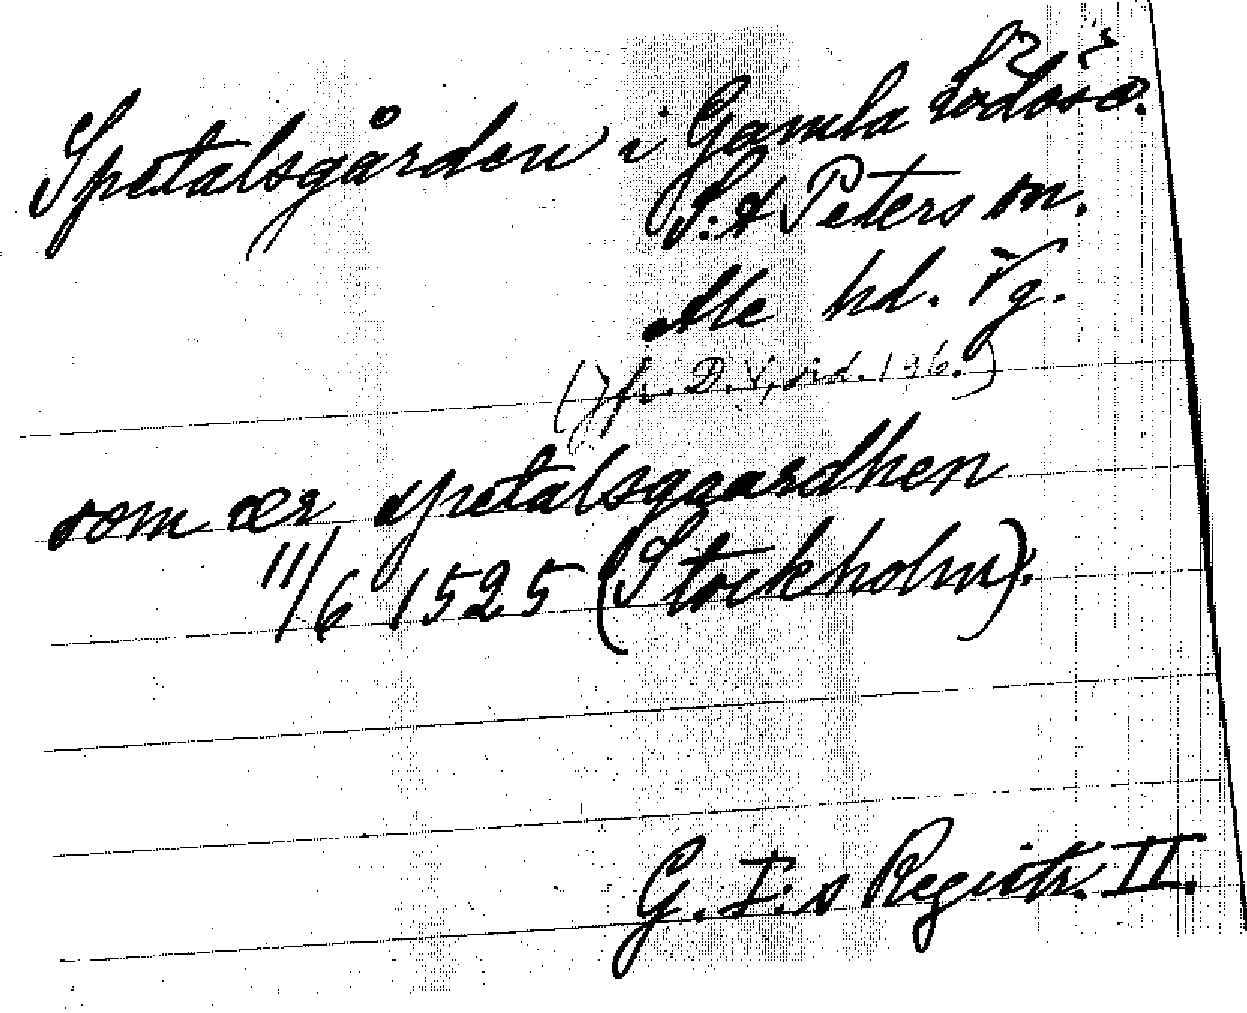 Spetalsgården i Gamla Lödöse.
S:t Peters sn.
Ale hd. Vg.
(Jfr. D. V, sid. 196.)
som ær spetalsgaardhen
11/6 1525 (Stockholm).
G. I:s Registr. II.